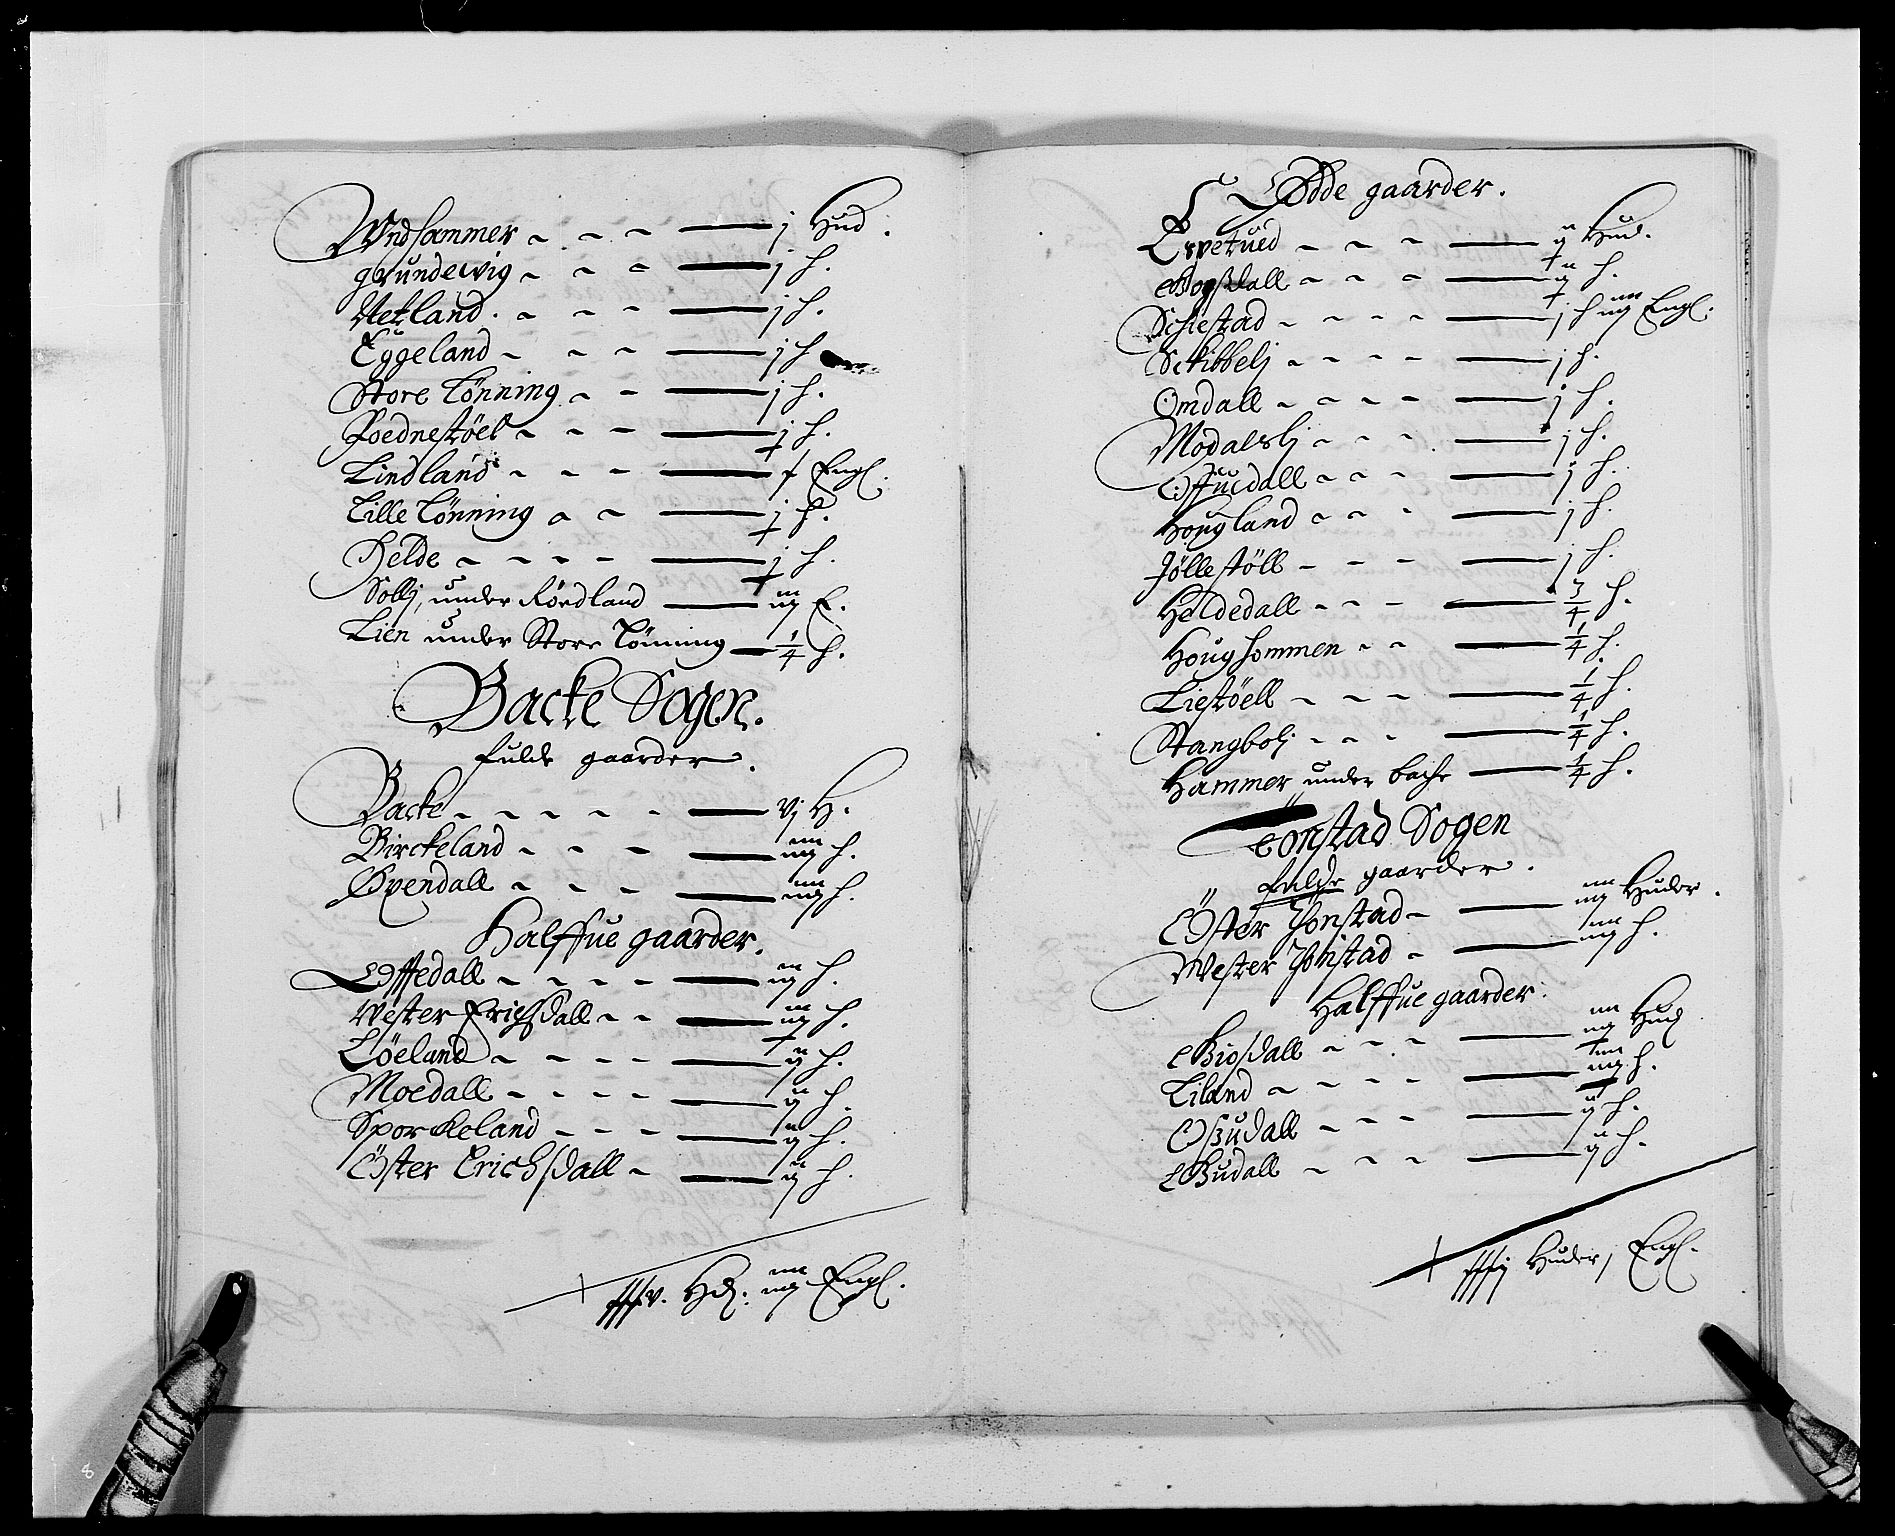 Wndsammer - - - j Hud:
grundewig - - - j h.
Netland - - - j h.
Eggeland - - - j h
Store Lønning - - j h.
Rednestøel - - - j h.
Lindland - - - Engl:
Lille Lønning - - j h.
Helde - - - - j h.
Sollj, under Rørdland iiij E.
Lien under Store Lønning 1/4 h.
Backe Sogen.
fulde gaarder.
Backe - - - - - vj H.
Birckeland - - - iiij h.
Øvendall - - - iiij h.
Halffue gaarder.
Offedall - - - - iij h.
Wester Erichsdall - - iij h.
Løeland - - - - ij h.
Moedall - - - - ij h.
Sporckeland - - - ij h.
Öster Erichsdall - ij h.
Hd: iiij Engl.
Ødde gaarder.
Ervetued - - - ij Hud.
Bogsdall - - - ij h.
Schiestad - - - - j h iiij Engl:
Schibbelj - - - - j h.
Omdall - - - - j h.
Modalslj - - - j h.
Offuedall - - - j h.
Hougland - - - j h.
Jøllestøll - - - j h.
Heldedall - - - 3/4 h.
Houghommen - - 1/4 h.
Liestøell - - - 1/4 h.
Stangbolj - - - 1/4 h.
Hammer under backe 1/4 h.
Sogen
fulde gaarder.
Öster Jonstad - iiij Huder.
Wester Jonstad - iiij h.
Halffue gaarder.
Biosdall - - - iiij Hud
Eiland - - - - iiij h.
Osudall - - - ij h.
Budall - - - ij h.
Huder j Engl.
8